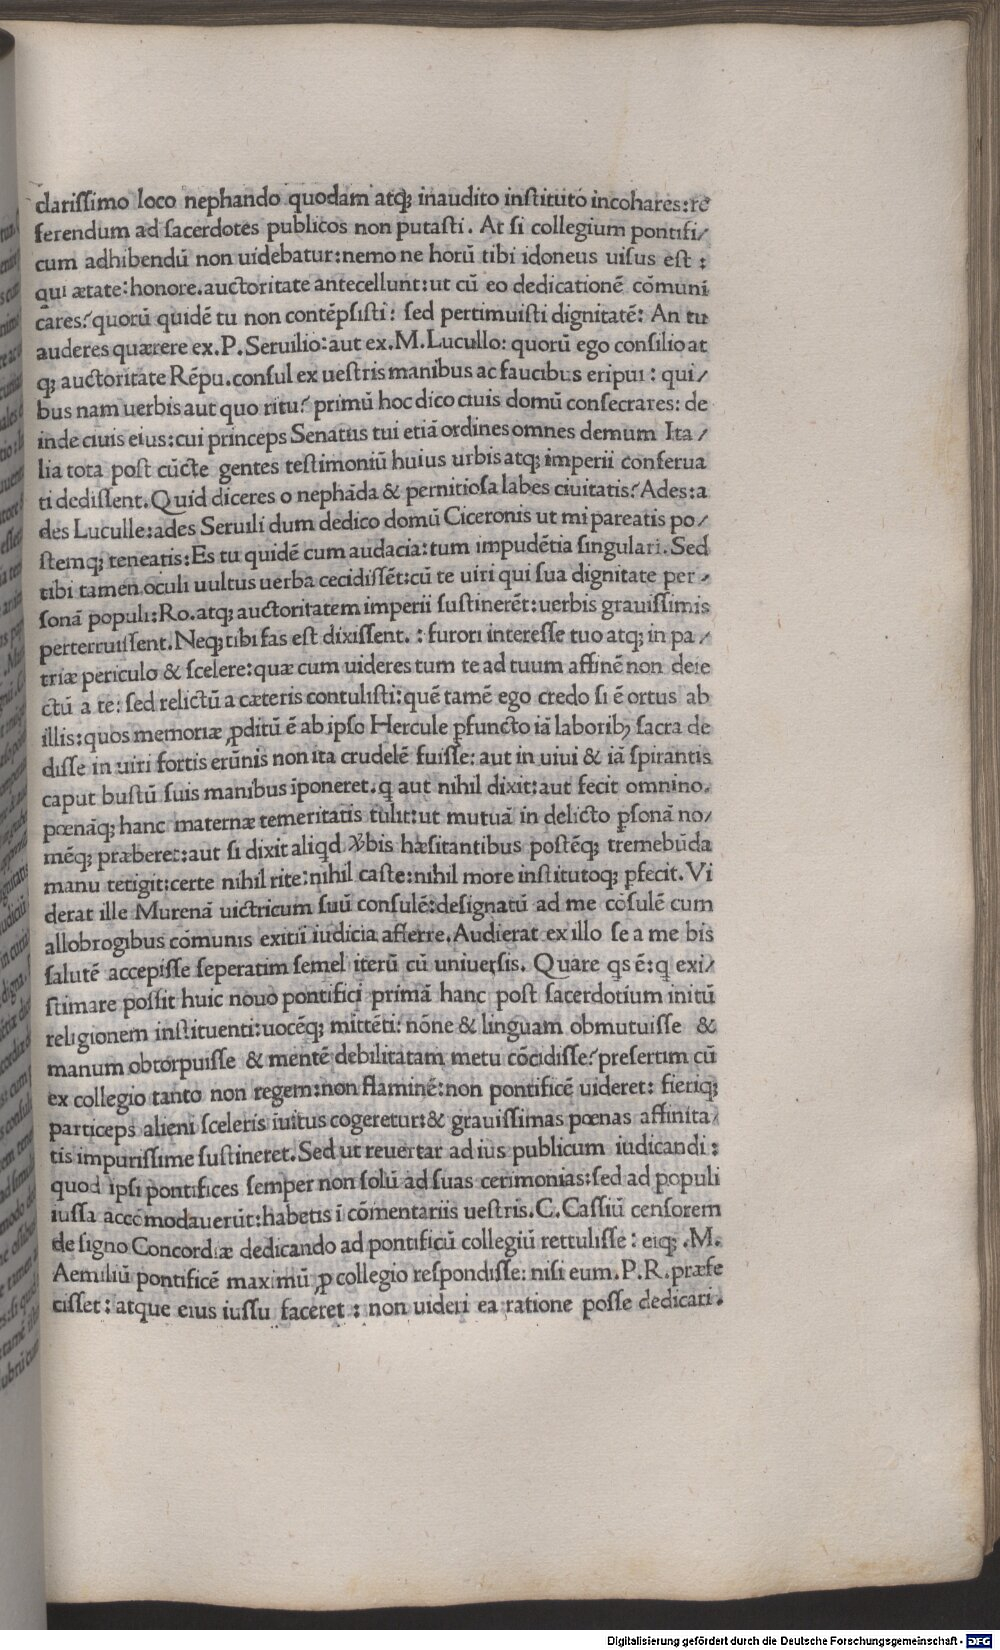 clarissimo loco nephando quodam atq; inaudito instituto incohares:re
ferendum ad sacerdotes publicos non putasti. At si collegium pontifi/
cum adhibendū non uidebatur:nemo ne horū tibi idoneus uisus est :
qui ætate:honore.auctoritate antecellunt:ut cū eo dedicationē cōmuni
cares? quorū quidē tu non contēpsisti: sed pertimuisti dignitatē: An tu
auderes quærere ex.P.Seruilio:aut ex.M.Lucullo: quorū ego consilio at
q; auctoritate Rēpu.consul ex uestris manibus ac faucibus eripui : qui/
bus nam uerbis aut quo ritu? primū hoc dico ciuis domū consecrares: de
inde ciuis eius:cui princeps Senatus tui etiā ordines omnes demum Ita/
lia tota post cūcte gentes testimoniū huius urbis atq; imperii conserua
ti dedissent.Quid diceres o nephāda & pernitiosa labes ciuitatis? Ades:a
des Luculle:ades Seruili dum dedico domū Ciceronis ut mi pareatis po/
stemq; teneatis:Es tu quidē cum audacia:tum impudētia singulari.Sed
tibi tamen oculi uultus uerba cecidissēt:cū te uiri qui sua dignitate per/
sonā populi:Ro.atq; auctoritatem imperii sustinerēt:uerbis grauissimis
perterruissent.Neq; tibi fas est dixissent. : furori interesse tuo atq; in pa/
triæ periculo & scelere:quæ cum uideres tum te ad tuum affinē non deie
ctū a te: sed relictū a cæteris contulisti:quē tamē ego credo si ē ortus ab
illis:quos memoriæ ꝓditū ē ab ipso Hercule ꝑfuncto iā laborib; sacra de
disse in uiri fortis erūnis non ita crudelē fuisse: aut in uiui & iā spirantis
caput bustū suis manibus īponeret.q aut nihil dixit:aut fecit omnino.
pœnāq; hanc maternæ temeritatis tulit:ut mutuā in delicto ꝑsonā no/
mēq; præberet:aut si dixit aliqd ƴbis hæsitantibus postēq; tremebūda
manu tetigit:certe nihil rite:nihil caste:nihil more institutoq; ꝑfecit.Vi
derat ille Murenā uictricum suū consulē:designatū ad me cōsulē cum
allobrogibus cōmunis exitii iudicia afferre.Audierat ex illo se a me bis
salutē accepisse seperatim semel iterū cū uniuersis. Quare qs ē:q exi/
stimare possit huic nouo pontifici primā hanc post sacerdotium initū
religionem instituenti:uocēq; mittēti: nōne & linguam obmutuisse &
manum obtorpuisse & mentē debilitatam metu cōcidisse? presertim cū
ex collegio tanto non regem:non flaminē:non pontificē uideret: fieriq;
particeps alieni sceleris iuitus cogeretur:& grauissimas pœnas affinita/
tis impurissime sustineret.Sed ut reuertar ad ius publicum iudicandi :
quod ipsi pontifices semper non solū ad suas cerimonias:sed ad populi
iussa accōmodauerūt:habetis ī cōmentariis uestris.C.Cassiū censorem
de signo Concordiæ dedicando ad pontificū collegiū rettulisse : eiq; .M.
Aemiliū pontificē maximū ꝓ collegio respondisse: nisi eum.P.R.præfe
cisset: atque eius iussu faceret : non uideri ea ratione posse dedicari.
Digitalisierung gefördert durch die Deutsche Forschungsgemeinschaft - DFG